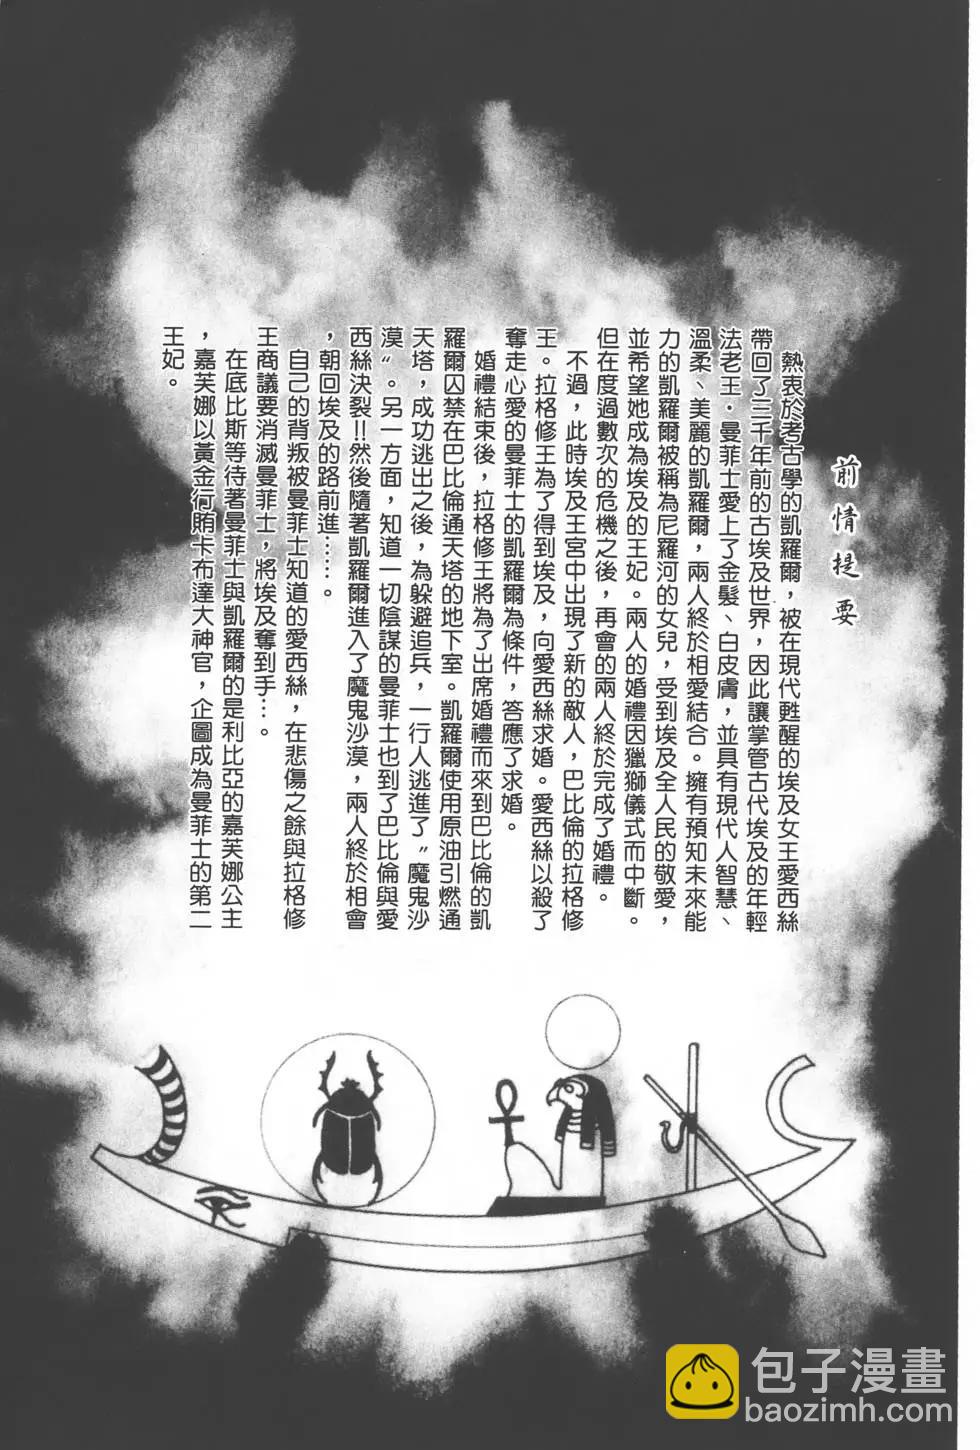 前情提要
熱衷於考古學的凱羅爾，被在現代甦醒的埃及女王愛西絲
帶回了三千年前的古埃及世界，因此讓掌管古代埃及的年輕
法老王．曼菲士愛上了金髮、白皮膚，並具有現代人智慧、
溫柔、美麗的凱羅爾，兩人終於相愛結合。擁有預知未來能
力的凱羅爾被稱為尼羅河的女兒，受到埃及全人民的敬愛，
並希望她成為埃及的王妃。兩人的婚禮因獵獅儀式而中斷。
但在度過數次的危機之後，再會的兩人終於完成了婚禮。
不過，此時埃及王宮中出現了新的敵人，巴比倫的拉格修
王。拉格修王為了得到埃及，向愛西絲求婚。愛西絲以殺了
奪走心愛的曼菲士的凱羅爾為條件，答應了求婚。
婚禮結束後，拉格修王將為了出席婚禮而來到巴比倫的凱
羅爾囚禁在巴比倫通天塔的地下室。凱羅爾使用原油引燃通
天塔，成功逃出之後，為躲避追兵，一行人逃進了〝魔鬼沙
漠〞。另一方面，知道一切陰謀的曼菲士也到了巴比倫與愛
西絲決裂!!然後隨著凱羅爾進入了魔鬼沙漠，兩人終於相會
，朝回埃及的路前進……。
自己的背叛被曼菲士知道的愛西絲，在悲傷之餘與拉格修
王商議要消滅曼菲士，將埃及奪到手…。
在底比斯等待著曼菲士與凱羅爾的是利比亞的嘉芙娜公主
，嘉芙娜以黃金行賄卡布達大神官，企圖成為曼菲士的第二
王妃。
包子漫畫
baozimh.com